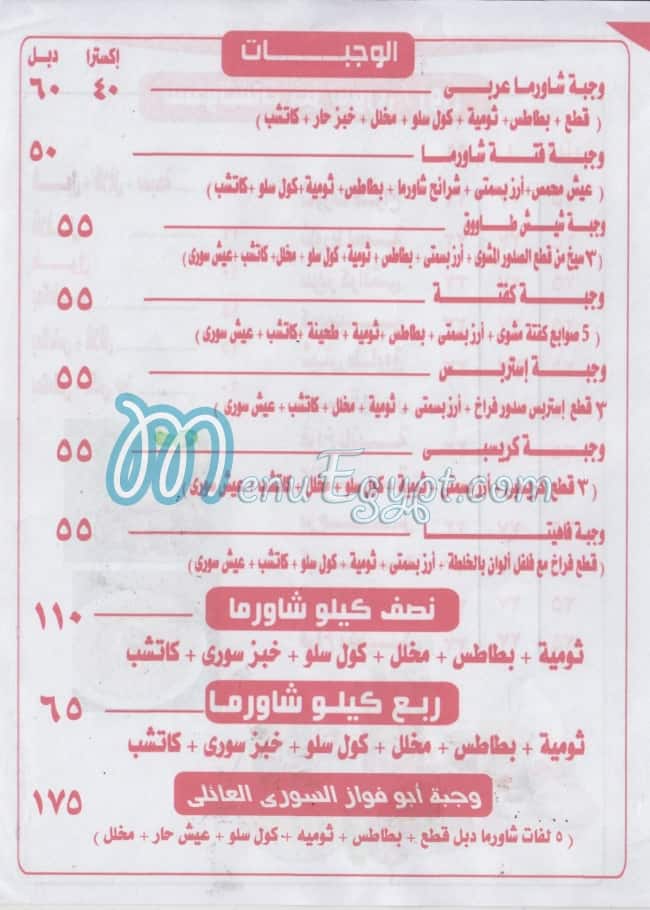 الوجبات
إكسترا دبل
وجبة شاورما عربى ٤٠ ٦٠
( قطع + بطاطس+ ثومية + كول سلو + مخلل + خبز حار + كاتشب )
وجبة فتة شاورما ٥٠
( عيش محمص+أرز بسمتى + شرائح شاورما + بطاطس+ ثومية+كول سلو +كاتشب )
وجبة شيش طاووق ٥٥
( ٣ سيخ من قطع الصدور المشوى + أرز بسمتى + بطاطس + ثومية+كول سلو + مخلل+ كاتشب +عيش سورى )
وجبة كفتة ٥٥
( 5 صوابع كفتة مشوى + أرز بسمتى + بطاطس +ثومية + طحينة +كاتشب + عيش سورى )
وجبة إستربس ٥٥
٣ قطع إستربس صدور فراخ + أرز بسمتى + ثومية + مخلل + كاتشب + عيش سورى )
وجبة كريسبى ٥٥
( ٣ قطع + أرز بسمتى + ثومية + كول سلو + مخلل + كاتشب + عيش سورى )
MenuEgypt.com
وجبة فاهيتا ٥٥
( قطع فراخ مع فلفل ألوان بالخلطة + أرز بسمتى + ثومية + كول سلو + كاتشب + عيش سورى )
نصف كيلو شاورما ١١٠
ثومية + بطاطس + مخلل + كول سلو + خبز سورى + كاتشب
ربع كيلو شاورما ٦٥
ثومية + بطاطس + مخلل + كول سلو + خبز سورى + كاتشب
وجبة أبو فواز السورى العائلى ١٧٥
( ٥ لفات شاورما دبل قطع + بطاطس + ثوميه +كول سلو + عيش حار + مخلل )